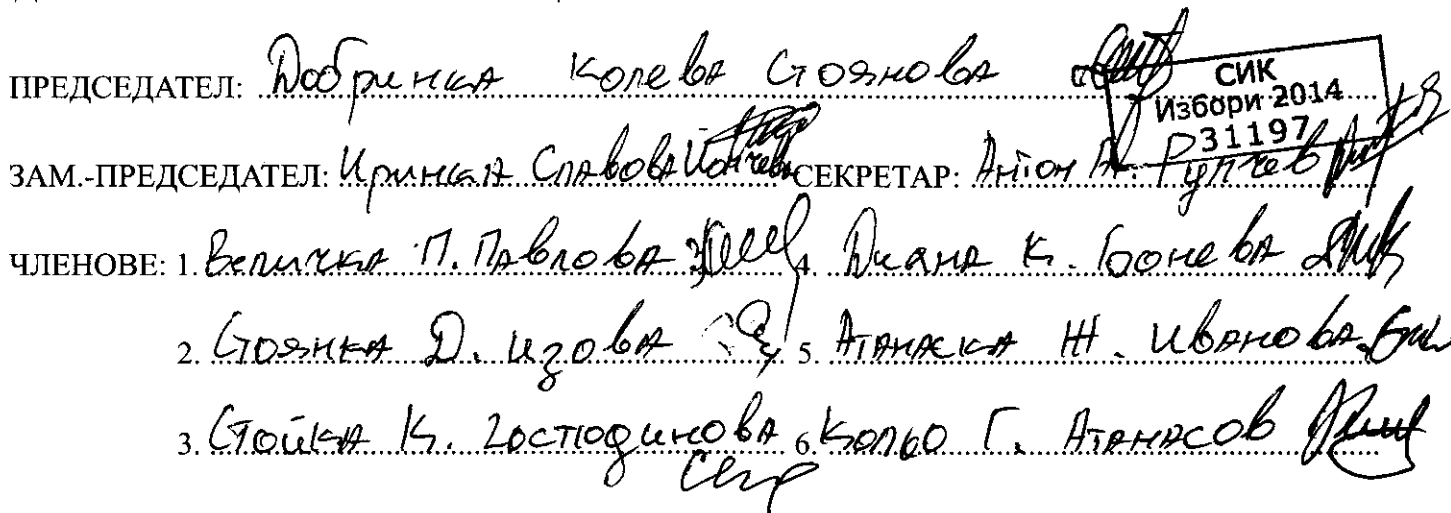 ПРЕДСЕДАТЕЛ: Добринка Колева Стоянова
СИК
Избори 2014
31197
ЗАМ.-ПРЕДСЕДАТЕЛ: Иринка Славова Йончева СЕКРЕТАР: Антон А. Рупчев
ЧЛЕНОВЕ: 1. Величка П. Павлова 4. Диана К. Бонева
2. Стоянка Д. Изова 5. Атанаска Ж. Иванова
3. Стойка К. Господинова 6. Кольо Г. Атанасов